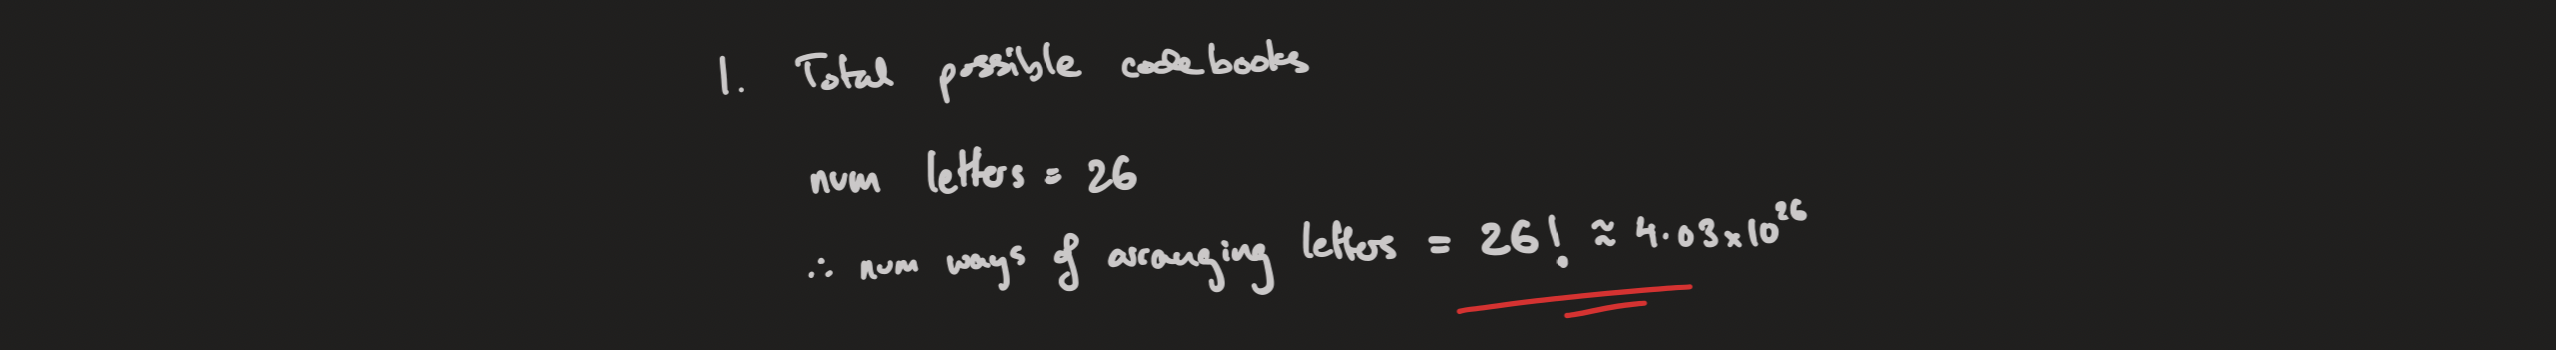 1. Total possible codebooks
num letters = 26
∴ num ways of arranging letters = 26! ≈ 4.03x10²⁶